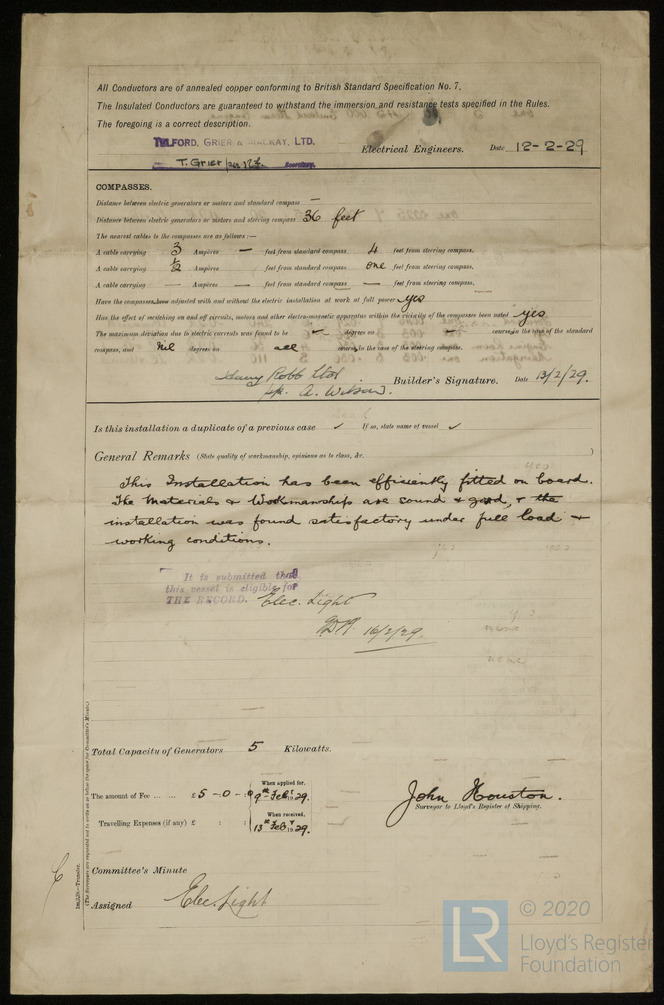 All Conductors are of annealed copper conforming to British Standard Specification No. 7.
The Insulated Conductors are guaranteed to withstand the immersion and resistance tests specified in the Rules.
The foregoing is a correct description.
TELFORD, GRIER & MACKAY, LTD.
T. Grier Secretary. Electrical Engineers. Date 12-2-29
COMPASSES.
Distance between electric generators or motors and standard compass —
Distance between electric generators or motors and steering compass 36 feet
The nearest cables to the compasses are as follows:—
A cable carrying 3 Ampères — feet from standard compass 4 feet from steering compass.
A cable carrying ½ Ampères — feet from standard compass one feet from steering compass.
A cable carrying — Ampères — feet from standard compass — feet from steering compass.
Have the compasses been adjusted with and without the electric installation at work at full power yes
Has the effect of switching on and off circuits, motors and other electro-magnetic apparatus within the vicinity of the compasses been noted yes
The maximum deviation due to electric currents was found to be — degrees on — course in the case of the standard
compass, and Nil degrees on all course in the case of the steering compass.
Henry Robb Ltd
A. Wilson. Builder's Signature. Date 13/2/29.
Is this installation a duplicate of a previous case ✓ If so, state name of vessel ✓
General Remarks (State quality of workmanship, opinions as to class, &c.
This Installation has been efficiently fitted on board.
The Materials & Workmanship are sound & good, & the
installation was found satisfactory under full load &
working conditions.
It is submitted that
this vessel is eligible for
THE RECORD. Elec. Light
16/2/29.
Total Capacity of Generators 5 Kilowatts.
The amount of Fee ... ... £ 5 - 0 - 0 When applied for, 9th Feby 1929.
Travelling Expenses (if any) £ : : When received, 13th Feby 1929.
John Houston.
Surveyor to Lloyd's Register of Shipping.
Committee's Minute
Assigned Elec. Light
(The Surveyors are requested not to write on or below the space for Committee's Minute.)
LR © 2020
Lloyd's Register
Foundation